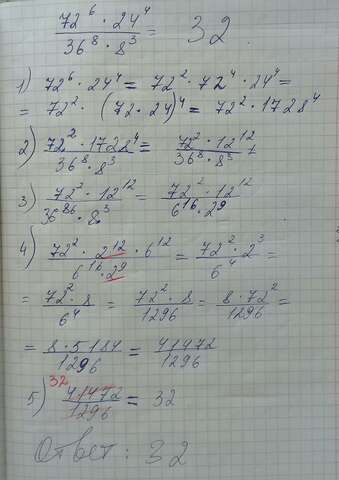 72⁶ · 24⁴ / 36⁸ · 8³ = 32
1) 72⁶ · 24⁴ = 72² · 72⁴ · 24⁴ =
= 72² · (72 · 24)⁴ = 72² · 1728⁴
2) 72² · 1728⁴ / 36⁸ · 8³ = 72² · 12¹² / 36⁸ · 8³ =
3) 72² · 12¹² / 36⁸ · 8³ = 72² · 12¹² / 6¹⁶ · 2⁹
4) 72² · 2¹² · 6¹² / 6¹⁶ · 2⁹ = 72² · 2³ / 6⁴ =
= 72² · 8 / 6⁴ = 72² · 8 / 1296 = 8 · 72² / 1296 =
= 8 · 5184 / 1296 = 41472 / 1296
32
5) 41472 / 1296 = 32
Ответ: 32